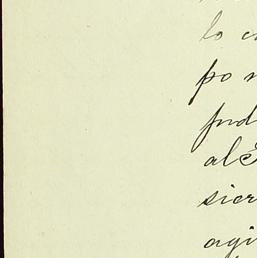 lo
po
pud
alé
sier
agi